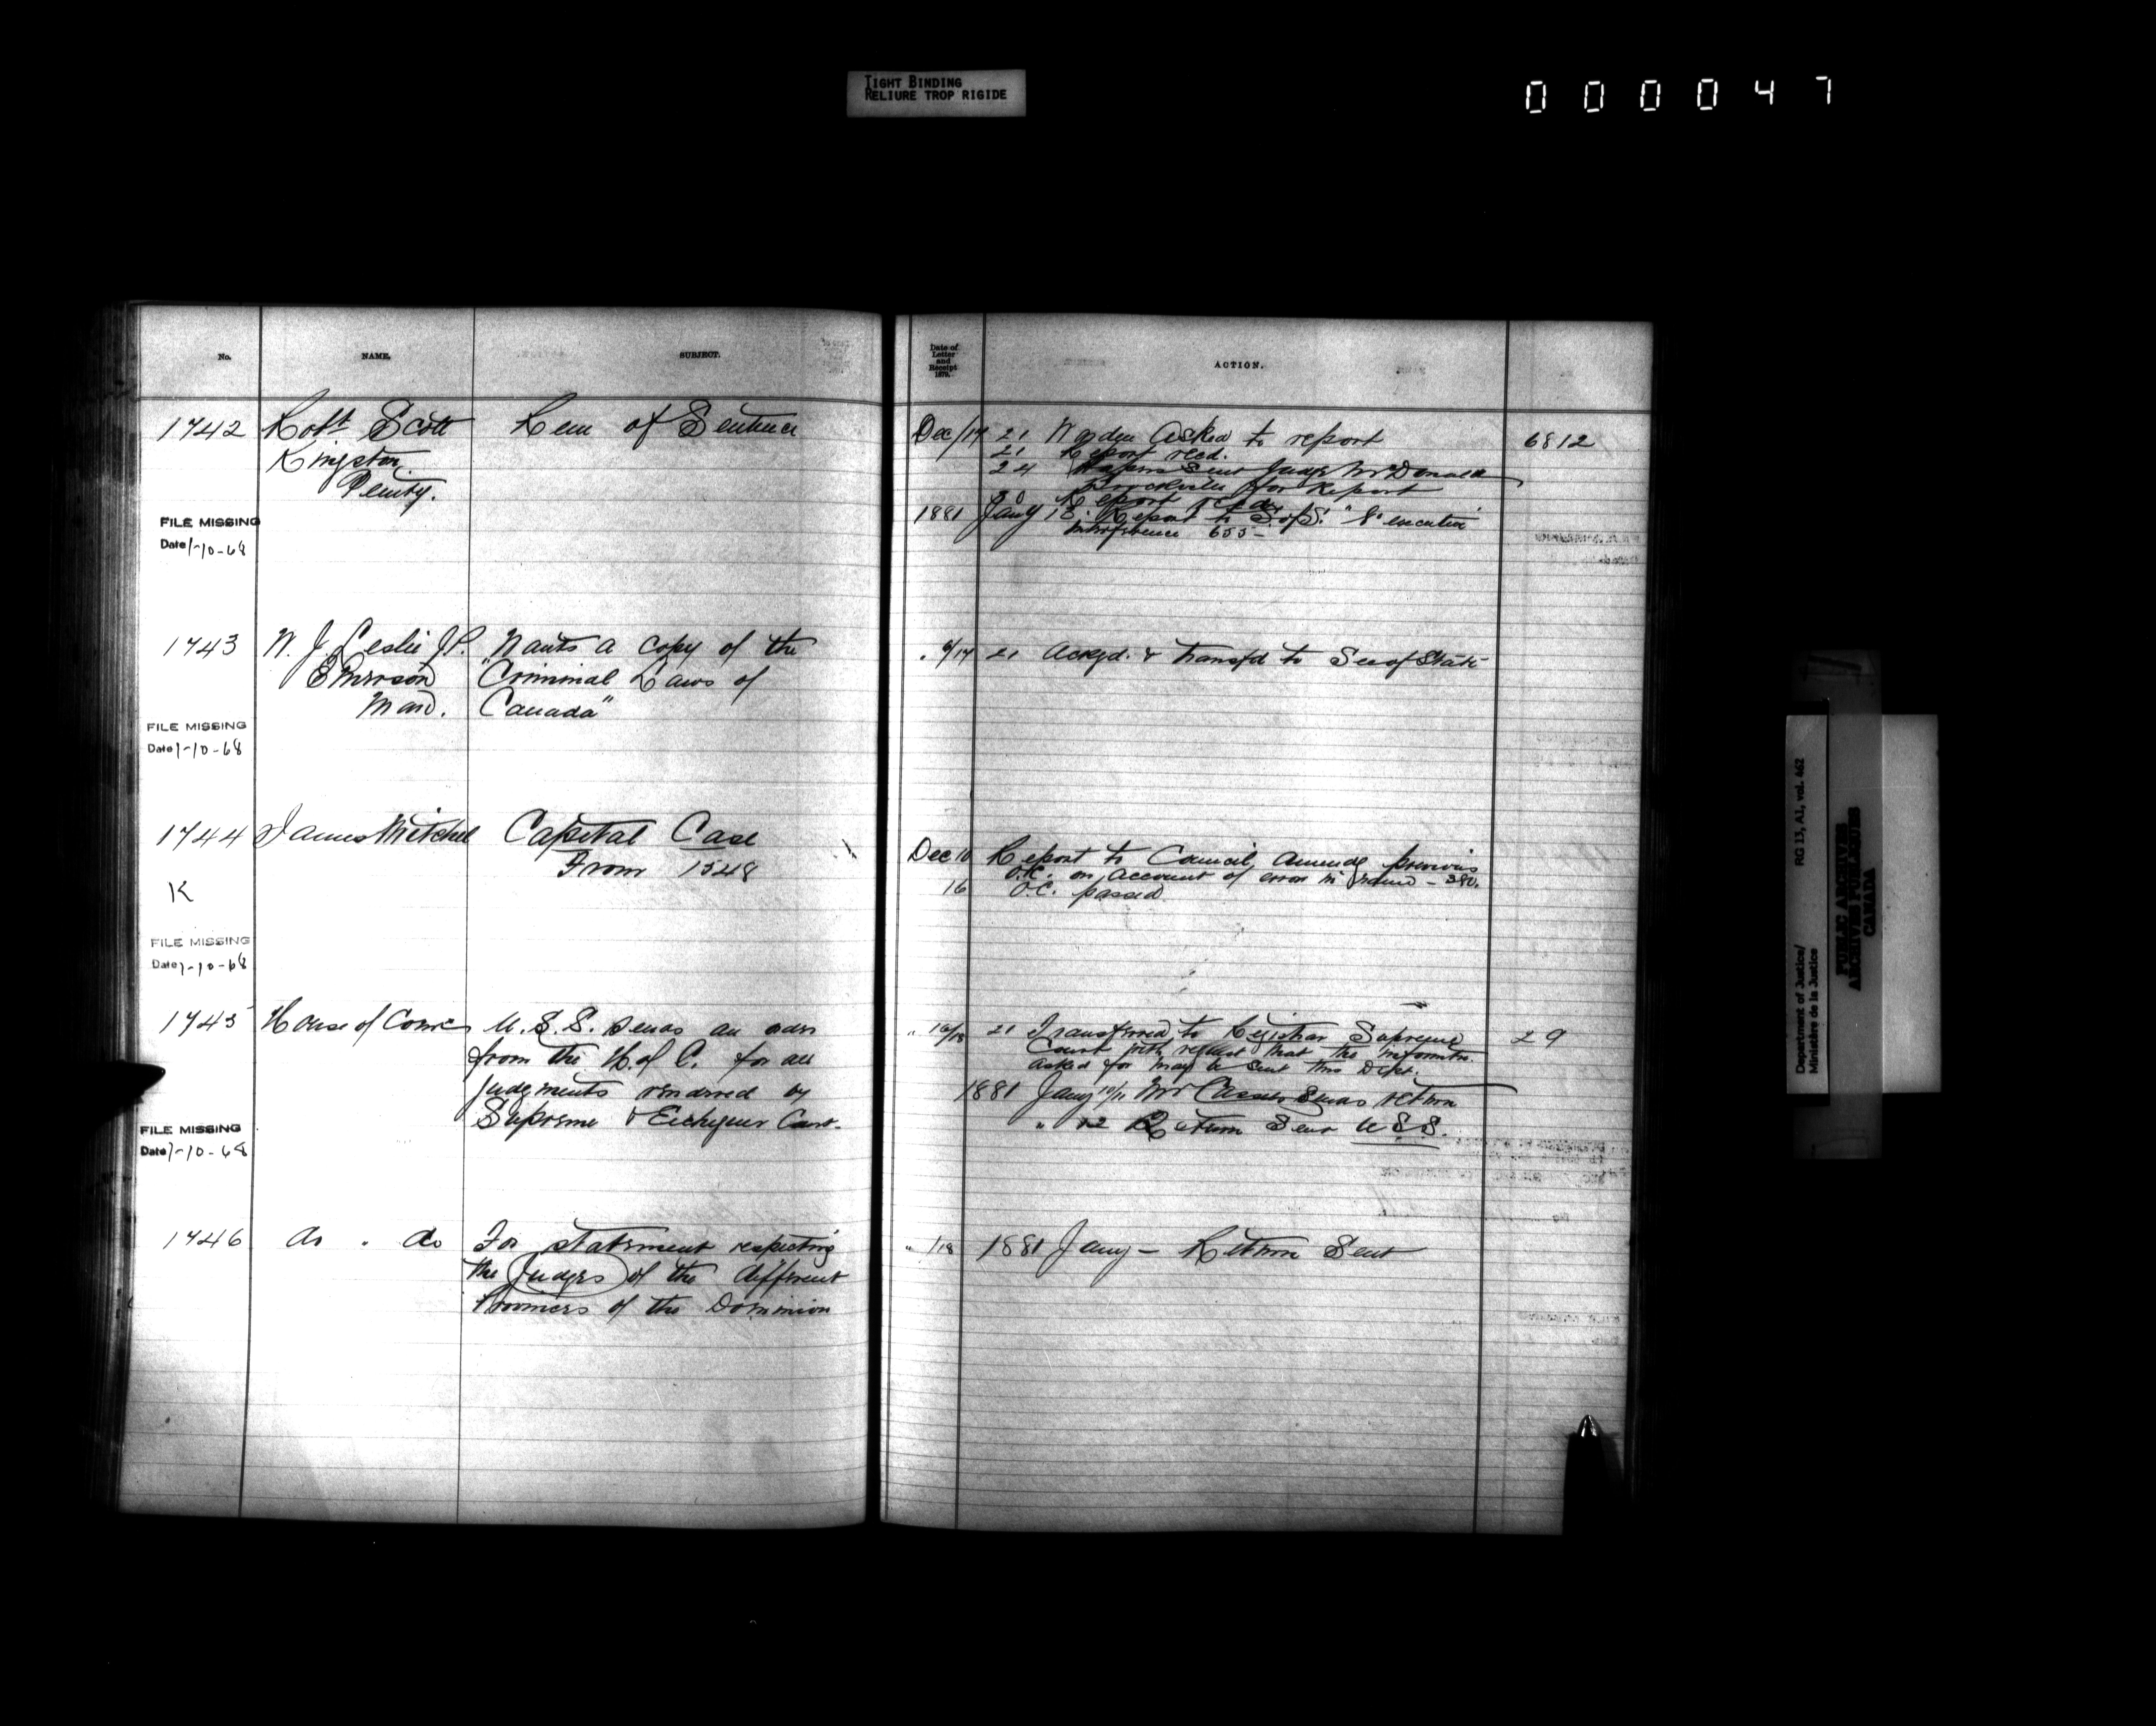 TIGHT BINDING
RELIURE TROP RIGIDE
000047
No. NAME. SUBJECT.
1742 Robt Scott Rem of Sentence
Kingston
Penity.
FILE MISSING
Date 1-10-68
1743 W. J. Leslie J.P. Wants a copy of the
Emerson "Criminal Laws of
Man. Canada"
FILE MISSING
Date 1-10-68
1744 James Mitchel Capital Case
From 1548
K
FILE MISSING
Date 1-10-68
1745 House of Coms U.S.S. sends an order
from the H. of C. for all
judgments rendered by
Supreme & Exchequer Court.
FILE MISSING
Date 1-10-68
1746 do " do For statement respecting
the Judges of the different
Provinces of the Dominion
Date of
Letter
and
Receipt
1879.
ACTION.
Dec /17 21 Warden Asked to report 6812
21 Report recd.
24 Papers Sent Judge McDonald
Brockville for Report
30 Report recd
1881 Jany 13. Report to S. of S. executive
interference 655-
" 9/17 21 Ackgd. & transfd to Sec of State
Dec 10 Report to Council, amendg previous
O.C. on account of error in name - 380.
16 O.C. passed
" 16/18 21 Transferred to Registrar Supreme 29
Court with request that the informtn.
asked for may be sent this Dept.
1881 Jany 10/11 Mr Cassels Sends return
" 12 Return Sent U.S.S.
" /18 1881 Jany - Return Sent
Department of Justice/ RG 13, A1, vol. 462
Ministère de la Justice
PUBLIC ARCHIVES
ARCHIVES PUBLIQUES
CANADA